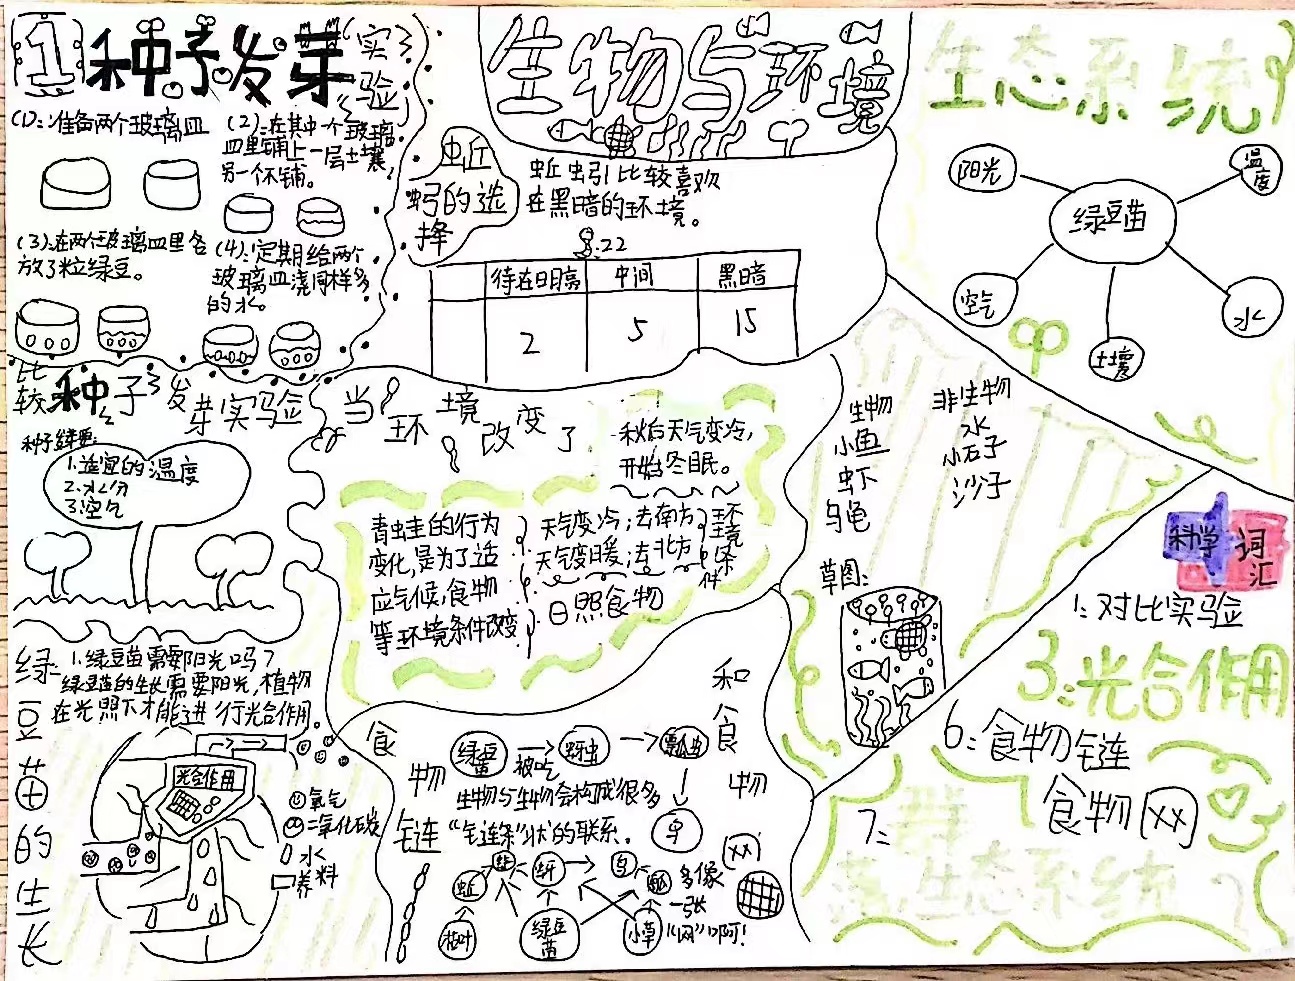 1 种子发芽实验
(1):准备两个玻璃皿
(2):在其中一个玻璃
皿里铺上一层土壤,
另一个不铺。
(3):在两个玻璃皿里各
放3粒绿豆。
(4):定期给两个
玻璃皿浇同样多
的水。
生物与环境
蚯
蚓的选
择
蚯蚓比较喜欢
在黑暗的环境。
22
待在明亮 中间 黑暗
2 5 15
生态系统
阳光
温度
绿豆苗
空气
水
土壤
比较种子发芽实验
1.适宜的温度
2.水分
3.空气
当环境改变了
秋后天气变冷,
开始冬眠。
青蛙的行为
变化,是为了适
应气候,食物
等环境条件改变
天气变冷;去南方
天气变暖;去北方
环境条件
日照食物
生物
小鱼
虾
乌龟
非生物
水
小石子
沙子
草图:
科学词汇
1:对比实验
3:光合作用
6:食物链
食物网
7:
群
落生态系统
绿豆苗的生长
1.绿豆苗需要阳光吗?
绿豆苗的生长需要阳光,植物
在光照下才能进行光合作用。
光合作用
氧气
二氧化碳
水
养料
食物链
和食物网
绿豆苗 被吃 蚜虫 瓢虫
鸟
生物与生物会构成很多
"链条"状的联系。
蚯
蚜
鸟
瓢
多像
一张
"网"啊!
绿豆苗
小草